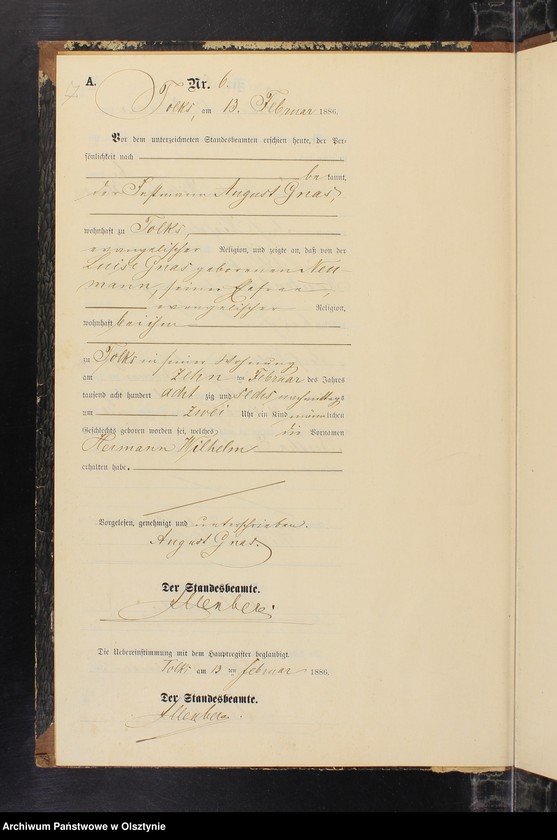 A.
Nr. 6.
Tolks, am 13. Februar 1886.
Vor dem unterzeichneten Standesbeamten erschien heute, der Per-
sönlichkeit nach
be kannt,
der Instmann August Gnas,
wohnhaft zu Tolks,
evangelischer Religion, und zeigte an, daß von der
Luise Gnas geborenen Neu-
mann, seiner Ehefrau,
evangelischer Religion,
wohnhaft bei ihm
zu Tolks in seiner Wohnung
am zehn ten Februar des Jahres
tausend acht hundert acht zig und sechs nachmittags
um zwei Uhr ein Kind männlichen
Geschlechts geboren worden sei, welches die Vornamen
Hermann Wilhelm
erhalten habe.
Vorgelesen, genehmigt und unterschrieben.
August Gnas.
Der Standesbeamte.
Die Uebereinstimmung mit dem Hauptregister beglaubigt.
Tolks am 13 ten Februar 1886.
Der Standesbeamte.
Archiwum Państwowe w Olsztynie